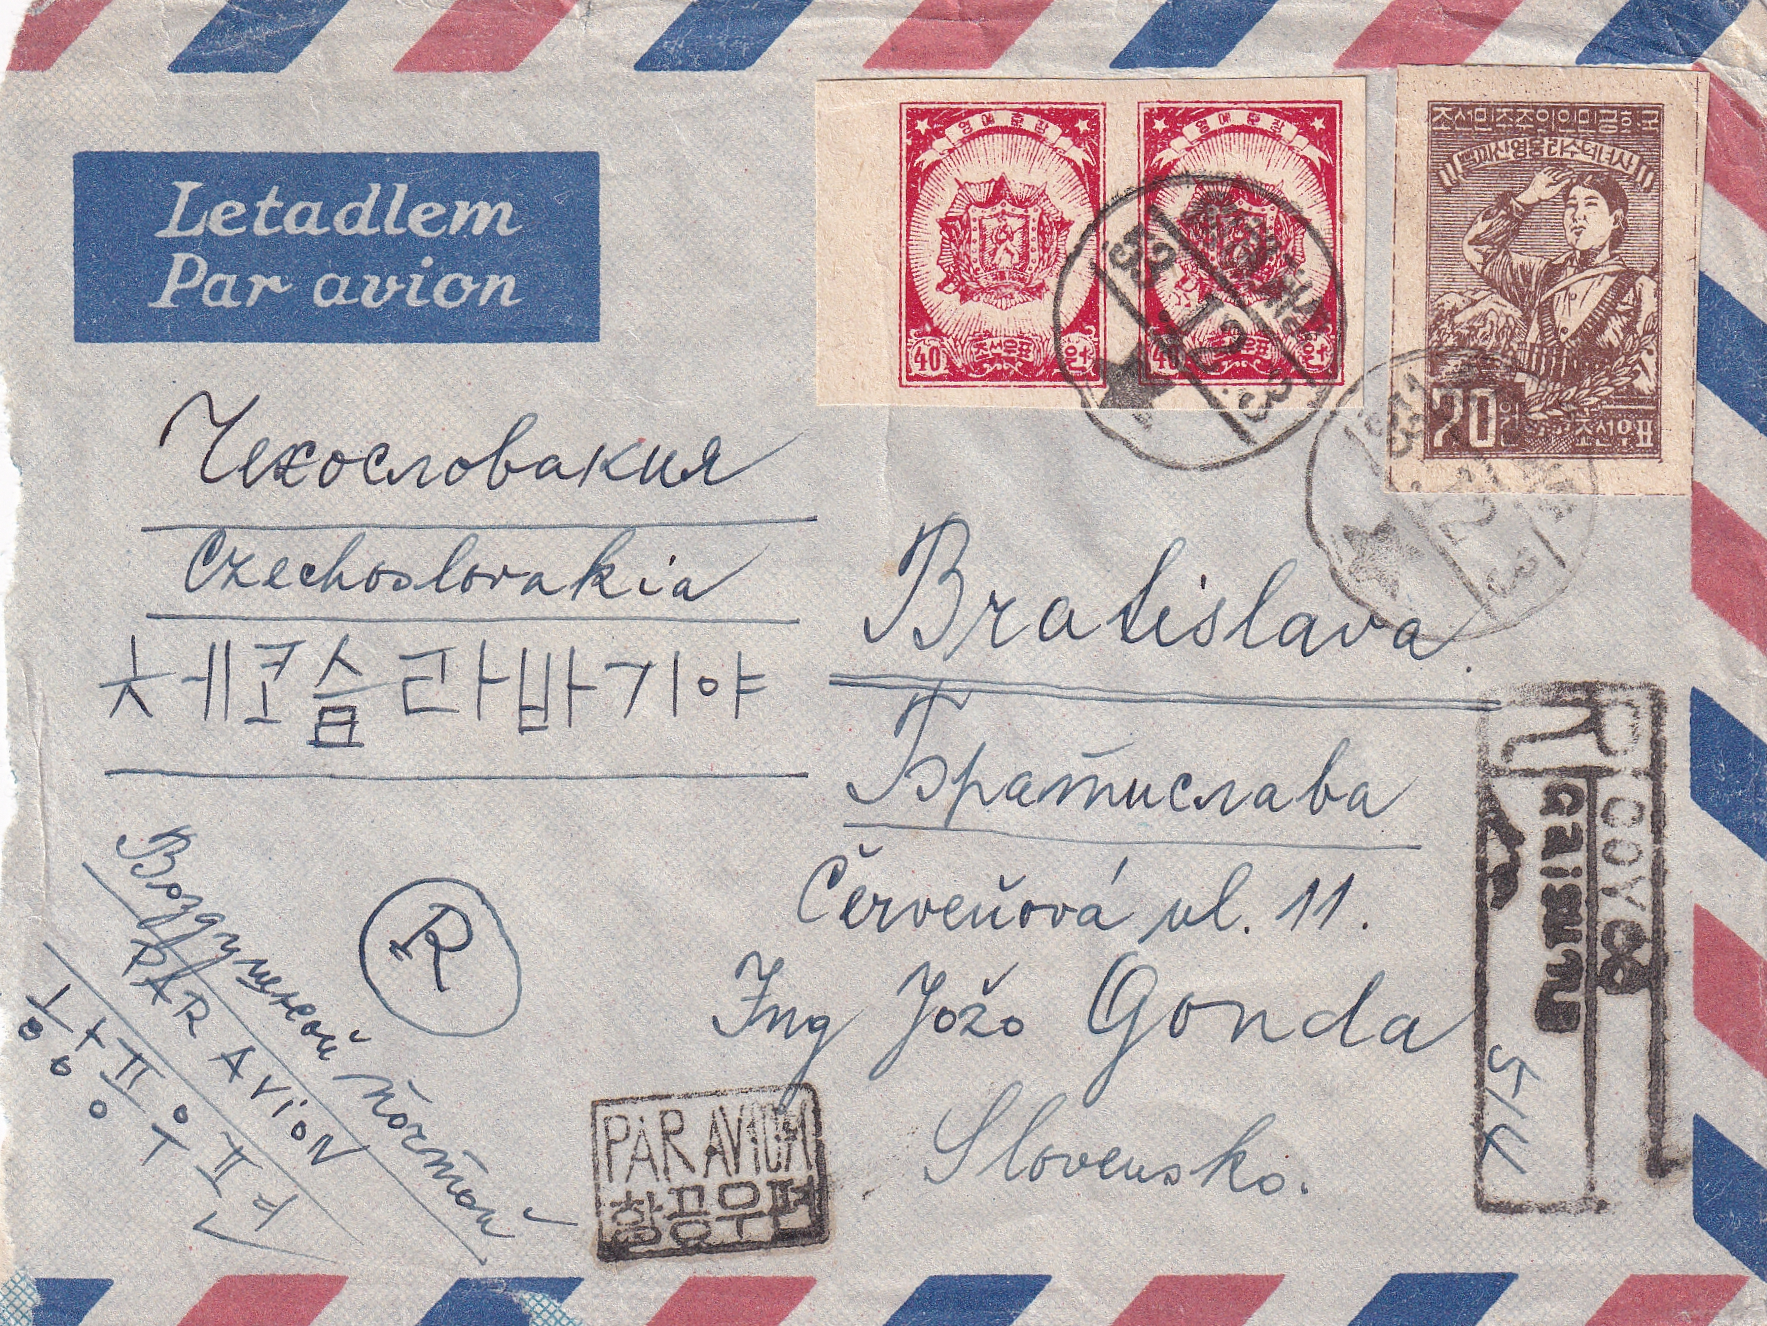 Letadlem
Par avion
영예훈장
40
조선우표
원
영예훈장
40
조선우표
원
53 12 3
조선민주주의인민공화국
70
원
조선우표
53 12 3
Чехословакия
Czechoslovakia
체코슬라바기야
Bratislava
Братислава
Červeňová ul. 11.
Ing Jožo Gonda
Slovensko.
R
Воздушной почтой
PAR AVION
항공우편
PAR AVION
항공우편
R